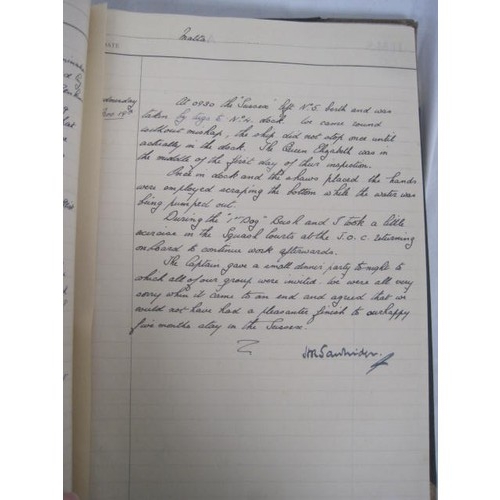 Malta
DATE
Wednesday
Nov 19th
At 0930 the "Sussex" left No 5. berth and was
taken by tugs to No 4. dock. We came round
without mishap, the ship did not stop once until
actually in the dock. The Queen Elizabeth was in
the middle of the first day of their inspection.
Once in dock and the shaws placed the hands
were employed scraping the bottom while the water was
being pumped out.
During the "1st Dog" Bush and I took a little
exercise in the Squash Courts at the J.O.C. returning
on board to continue work afterwards.
The Captain gave a small dinner party to-night to
which all of our group were invited. We were all very
sorry when it came to an end and agreed that we
could not have had a pleasanter finish to our happy
five months stay in the Sussex.